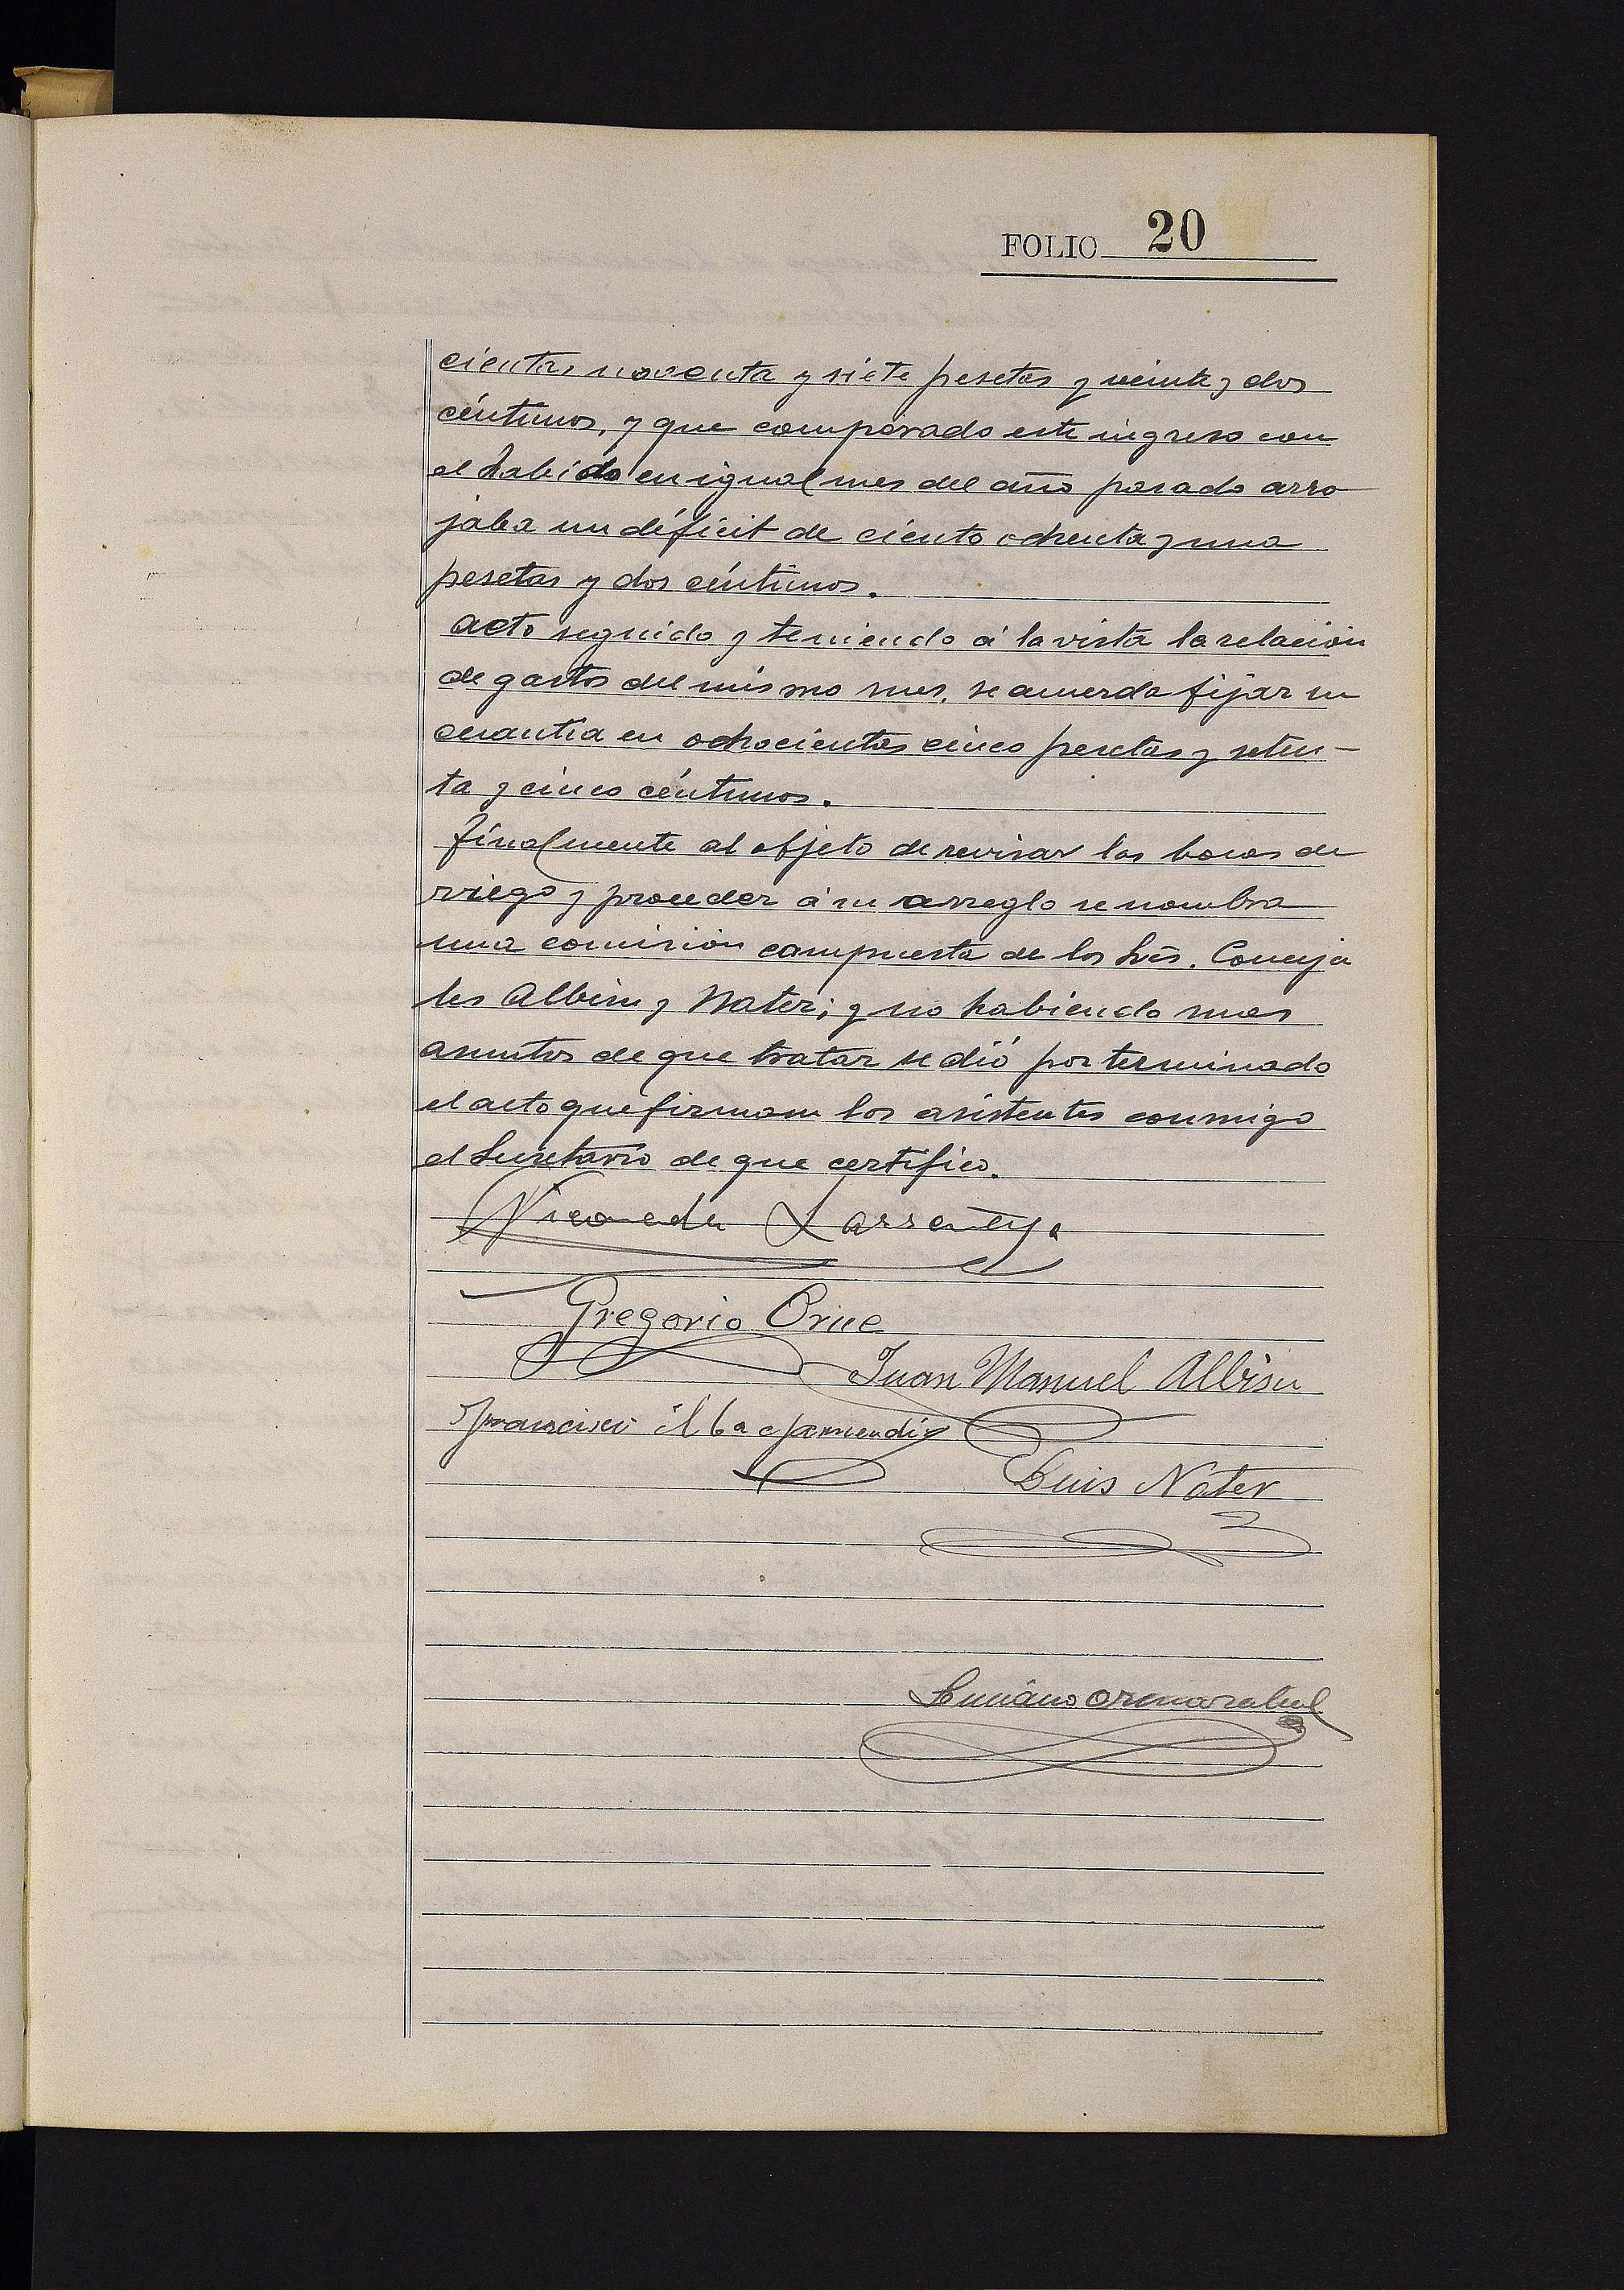 FOLIO 20
cientas noventa y siete pesetas y veinte y dos
céntimos, y que comparado este ingreso con
el habido en igual mes del año pasado arro
jaba un déficit de ciento ochenta y una
pesetas y dos céntimos.
Acto seguido y teniendo á la vista la relación
de gastos del mismo mes, se acuerda fijar su
cuantia en ochocientas cinco pesetas y seten-
ta y cinco céntimos.
Finalmente al objeto de revisar las bocas de
riego y proceder á su arreglo se nombra
una comisión compuesta de los Srs. Conceja
les Albisu y Nater; y no habiendo mas
asuntos de que tratar se dió por terminado
el acto que firman los asistentes conmigo
el Secretario de que certifico.
Nicomedes Larrañaga
Gregorio Orue
Juan Manuel Albisu
Francisco
Luis Nater
Luciano Ormazabal